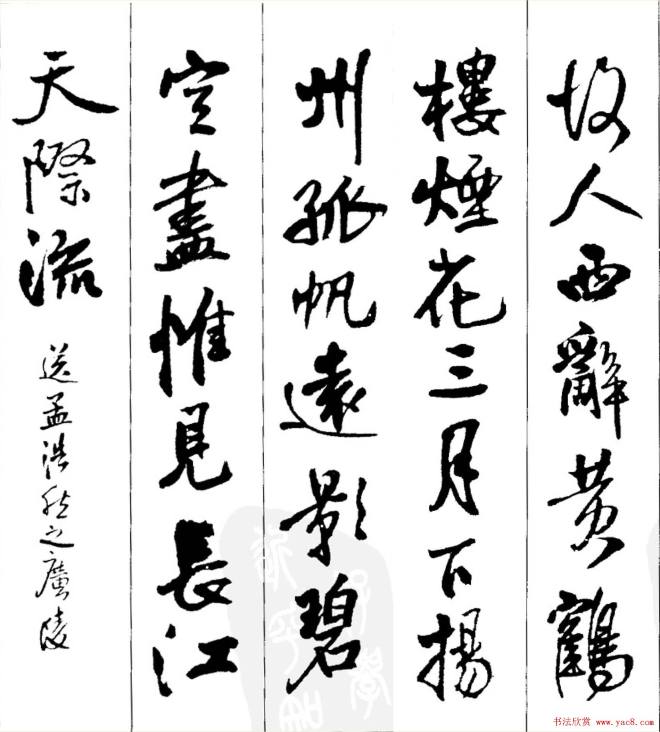 故人西辭黃鶴
樓煙花三月下揚
州孤帆遠影碧
空盡惟見長江
天際流
送孟浩然之廣陵
书法欣赏 www.yac8.com